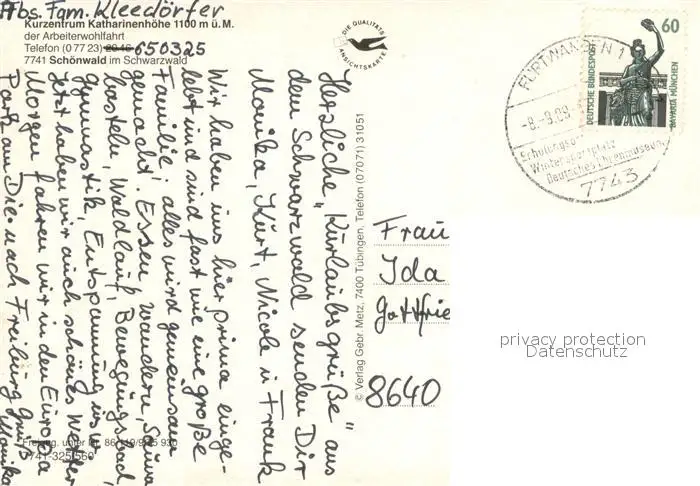 Abs. Fam. Kleedörfer
Kurzentrum Katharinenhöhe 1100 m ü.M.
der Arbeiterwohlfahrt
Telefon (0 77 23) 650325
7741 Schönwald im Schwarzwald
Herzliche „Kurlaubsgrüße" aus
dem Schwarzwald senden Dir
Monika, Kurt, Nicole u. Frank
Wir haben uns hier prima einge-
lebt und sind fast wie eine große
Familie, alles wird gemeinsam
gemacht. Essen, Wandern, Sauna
basteln, Waldlauf, Bewegungsbad,
Gymnastik, Entspannung usw.
Jetzt haben wir auch schönes Wetter
Morgen fahren wir in den Europa
Park am Die. nach Freiburg Gruß
Monika
Freigeg. unter Nr.
7741-325/560
DIE QUALITÄTS
ANSICHTSKARTE
© Verlag Gebr. Metz, 7400 Tübingen, Telefon (07071) 31051
60
DEUTSCHE BUNDESPOST
BAVARIA MÜNCHEN
FURTWANGEN 1
Wintersportplatz
Deutsches Uhrenmuseum
7743
Frau
Ida
Gottfrie
8640
privacy protection
Datenschutz